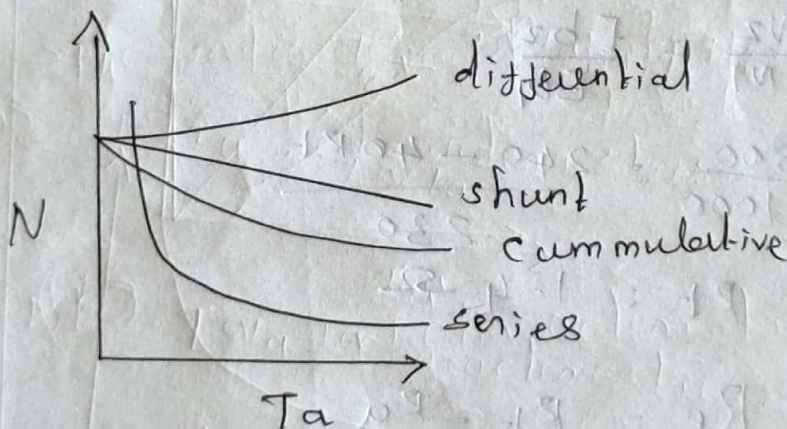 differential
shunt
N
cummulative
series
Ta